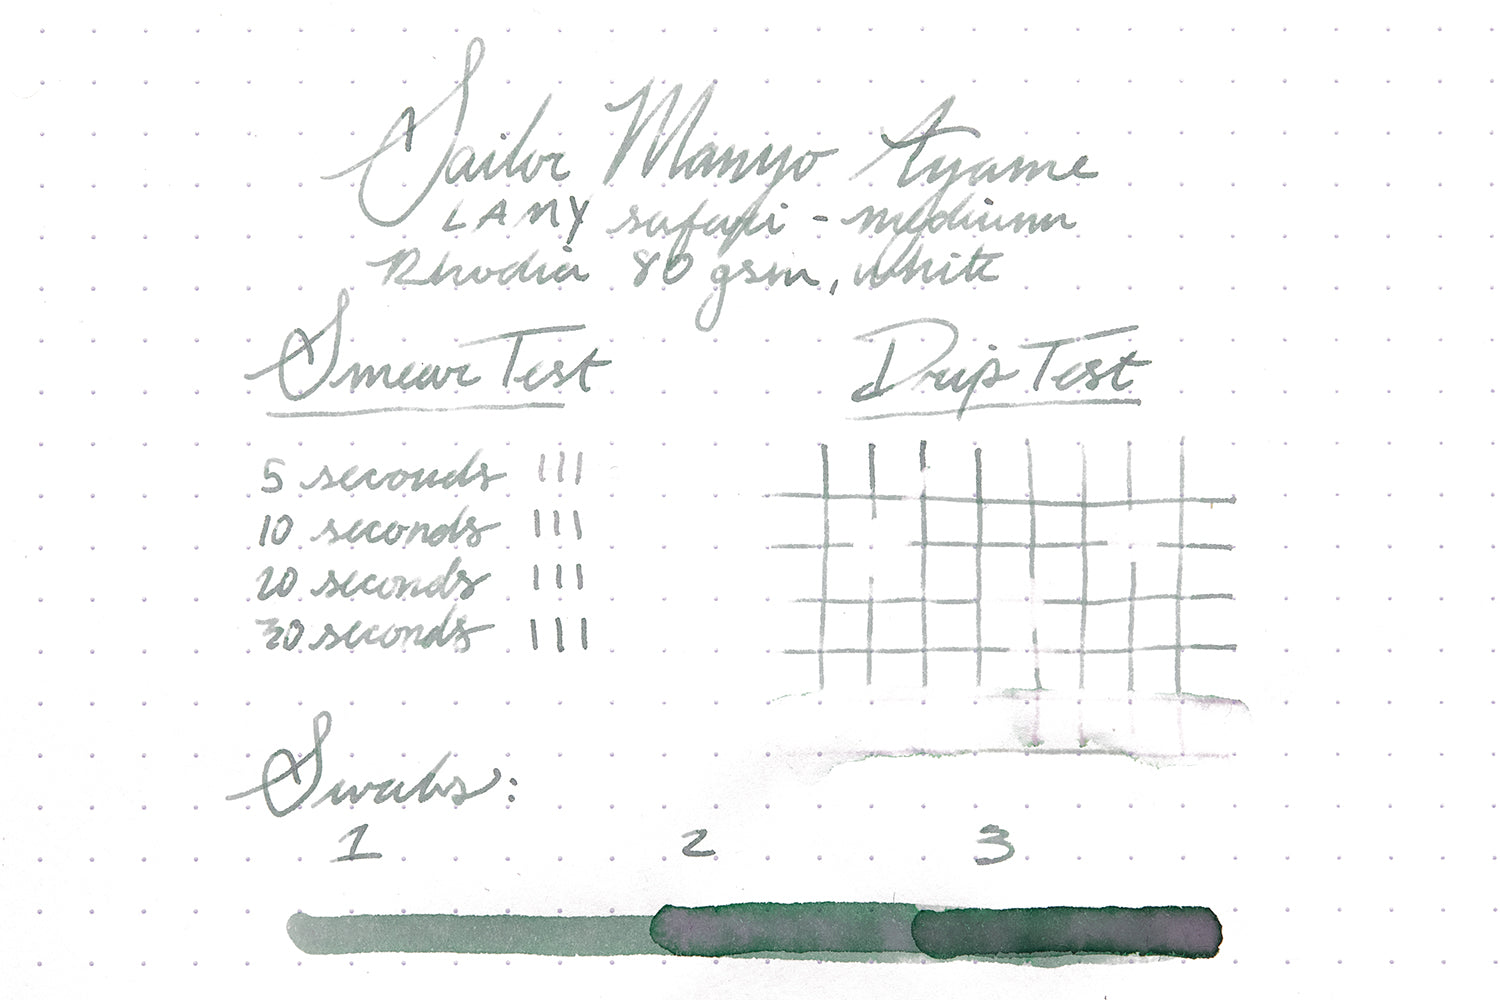 Sailor Manyo Ayame
LAMY safari - medium
Rhodia 80 gsm, white
Smear Test
Drip Test
5 seconds
10 seconds
20 seconds
30 seconds
Swabs:
1 2 3